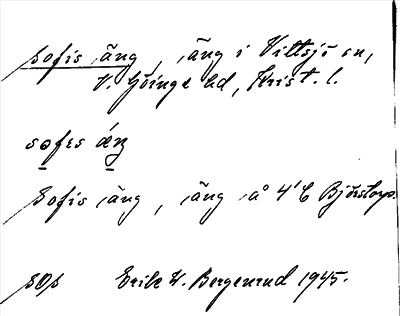 Sofis äng, äng i Vittsjö sn,
V. Göinge hd, Krist. l.
sofɪs äŋ
Sofis äng, äng å 4'C Björstorp.
SOP Erik W. Bergenrud 1945.